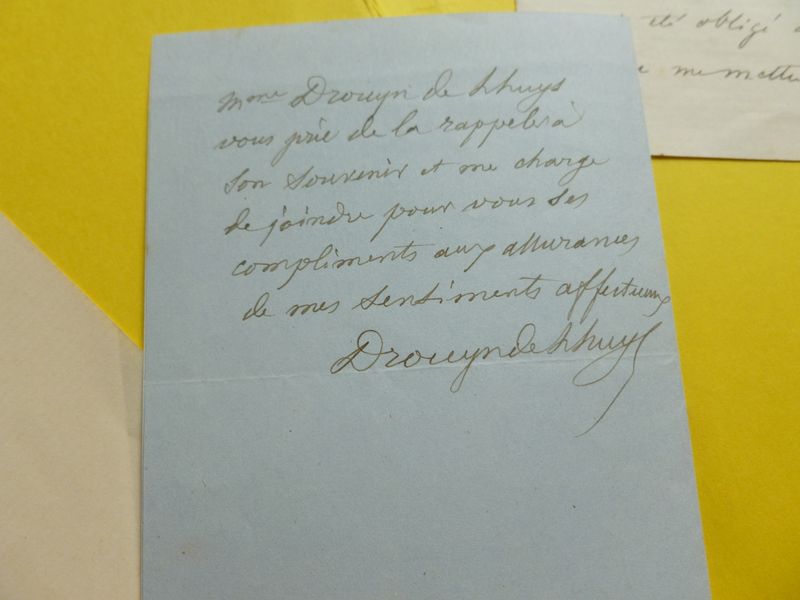 été obligé
me mettre
Mme Drouyn de Lhuys
vous prie de la rappeler à
son souvenir et me charge
de joindre pour vous ses
compliments aux assurances
de mes sentiments affectueux
Drouyn de Lhuys